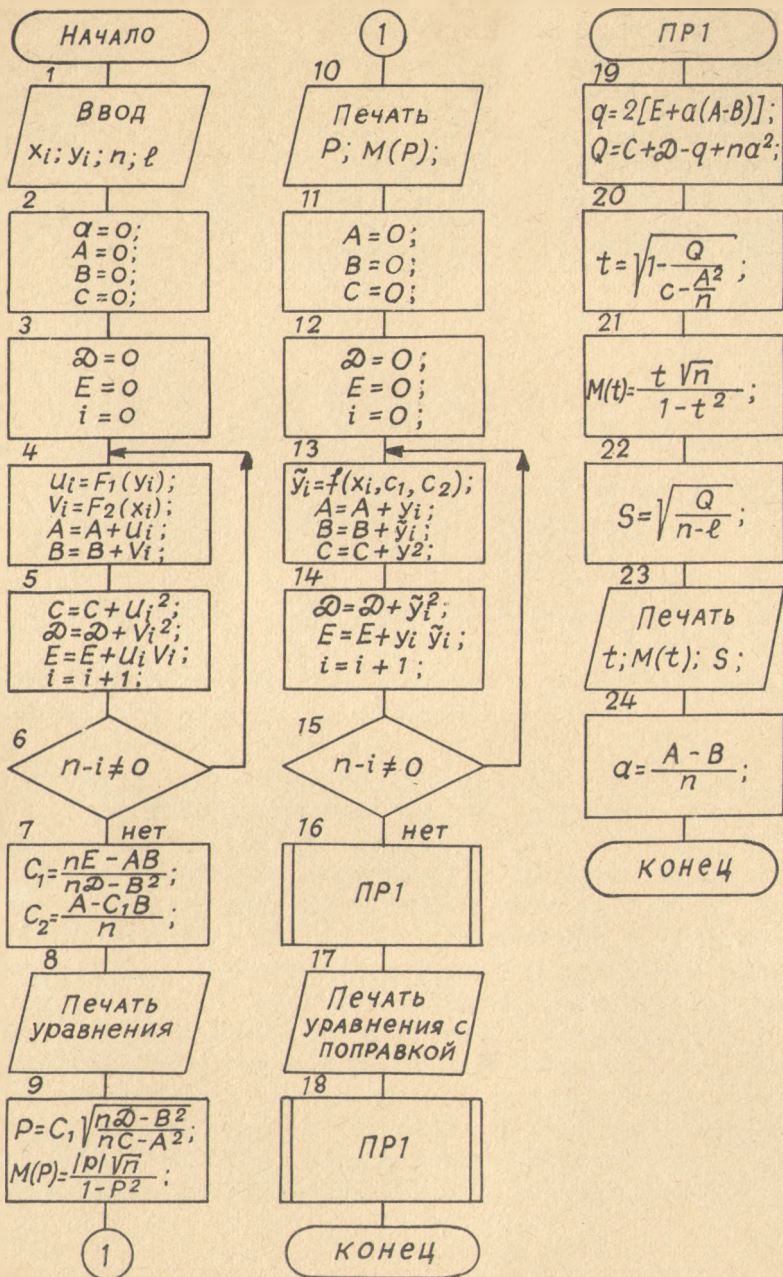 Начало
1
Ввод
xi; yi; n; ℓ
2
a=0;
A=0;
B=0;
C=0;
3
D=0
E=0
i=0
4
Ui=F1(yi);
Vi=F2(xi);
A=A+Ui;
B=B+Vi;
5
C=C+Ui²;
D=D+Vi²;
E=E+UiVi;
i=i+1;
6
n-i≠0
нет
7
C1=(nE-AB)/(nD-B²);
C2=(A-C1B)/n;
8
Печать
уравнения
9
P=C1√((nD-B²)/(nC-A²));
M(P)=|p|√n/(1-P²);
1
1
10
Печать
P; M(P);
11
A=0;
B=0;
C=0;
12
D=0;
E=0;
i=0;
13
ỹi=f(xi,c1,c2);
A=A+yi;
B=B+ỹi;
C=C+y2;
14
D=D+ỹi²;
E=E+yi ỹi;
i=i+1;
15
n-i≠0
нет
16
ПР1
17
Печать
уравнения с
поправкой
18
ПР1
конец
ПР1
19
q=2[E+a(A-B)];
Q=C+D-q+na²;
20
t=√(1-Q/(c-A²/n));
21
M(t)=t√n/(1-t²);
22
S=√(Q/(n-ℓ));
23
Печать
t; M(t); S;
24
a=(A-B)/n;
конец